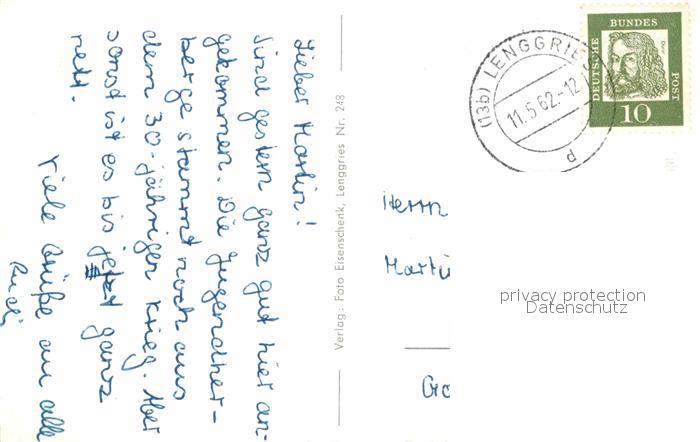 Lieber Martin!
Sind gestern ganz gut hier an-
gekommen. Die Jugendher-
berge stammt noch aus
dem 30-jährigen Krieg. Aber
sonst ist es bis jetzt ganz
nett.
Viele Grüße an alle
Rudi
Verlag: Foto Eisenschenk, Lenggries Nr. 248
(13b) LENGGRIES
11.5.62.-12
d
DEUTSCHE
BUNDES
POST
Dürer
10
Herrn
Martin
privacy protection
Datenschutz